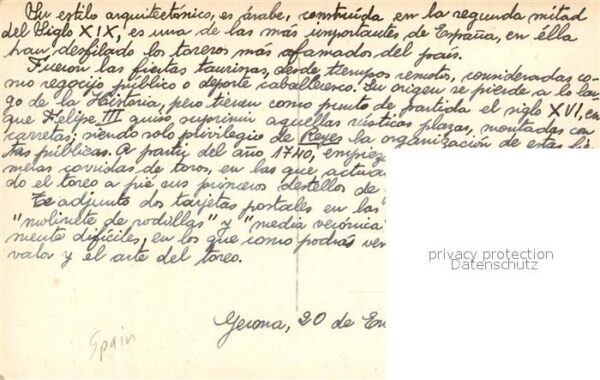 Su estilo arquitectónico, es árabe, construída en la segunda mitad
del Siglo XIX, es una de las más importantes de España, en élla
han desfilado los toreros más afamados del país.
Fueron las fiestas taurinas, desde tiempos remotos, consideradas co-
mo regocijo público o deporte caballeresco. Su origen se pierde a lo lar-
go de la Historia, pero tienen como punto de partida el siglo XVI, en
que Felipe III quiso suprimir aquellas rústicas plazas, montadas con
carretas, siendo solo privilegio de Reyes la organización de estas
tas públicas. A partir del año 1740,
meras corridas de toros, en las que
do el toreo a pie sus primeros destellos de
Te adjunto dos tarjetas postales en las
"molinete de rodillas" y "media verónica"
mente difíciles, en los que como podrás ver
valor y el arte del toreo.
privacy protection
Datenschutz
Gerona, 20 de En
Spain